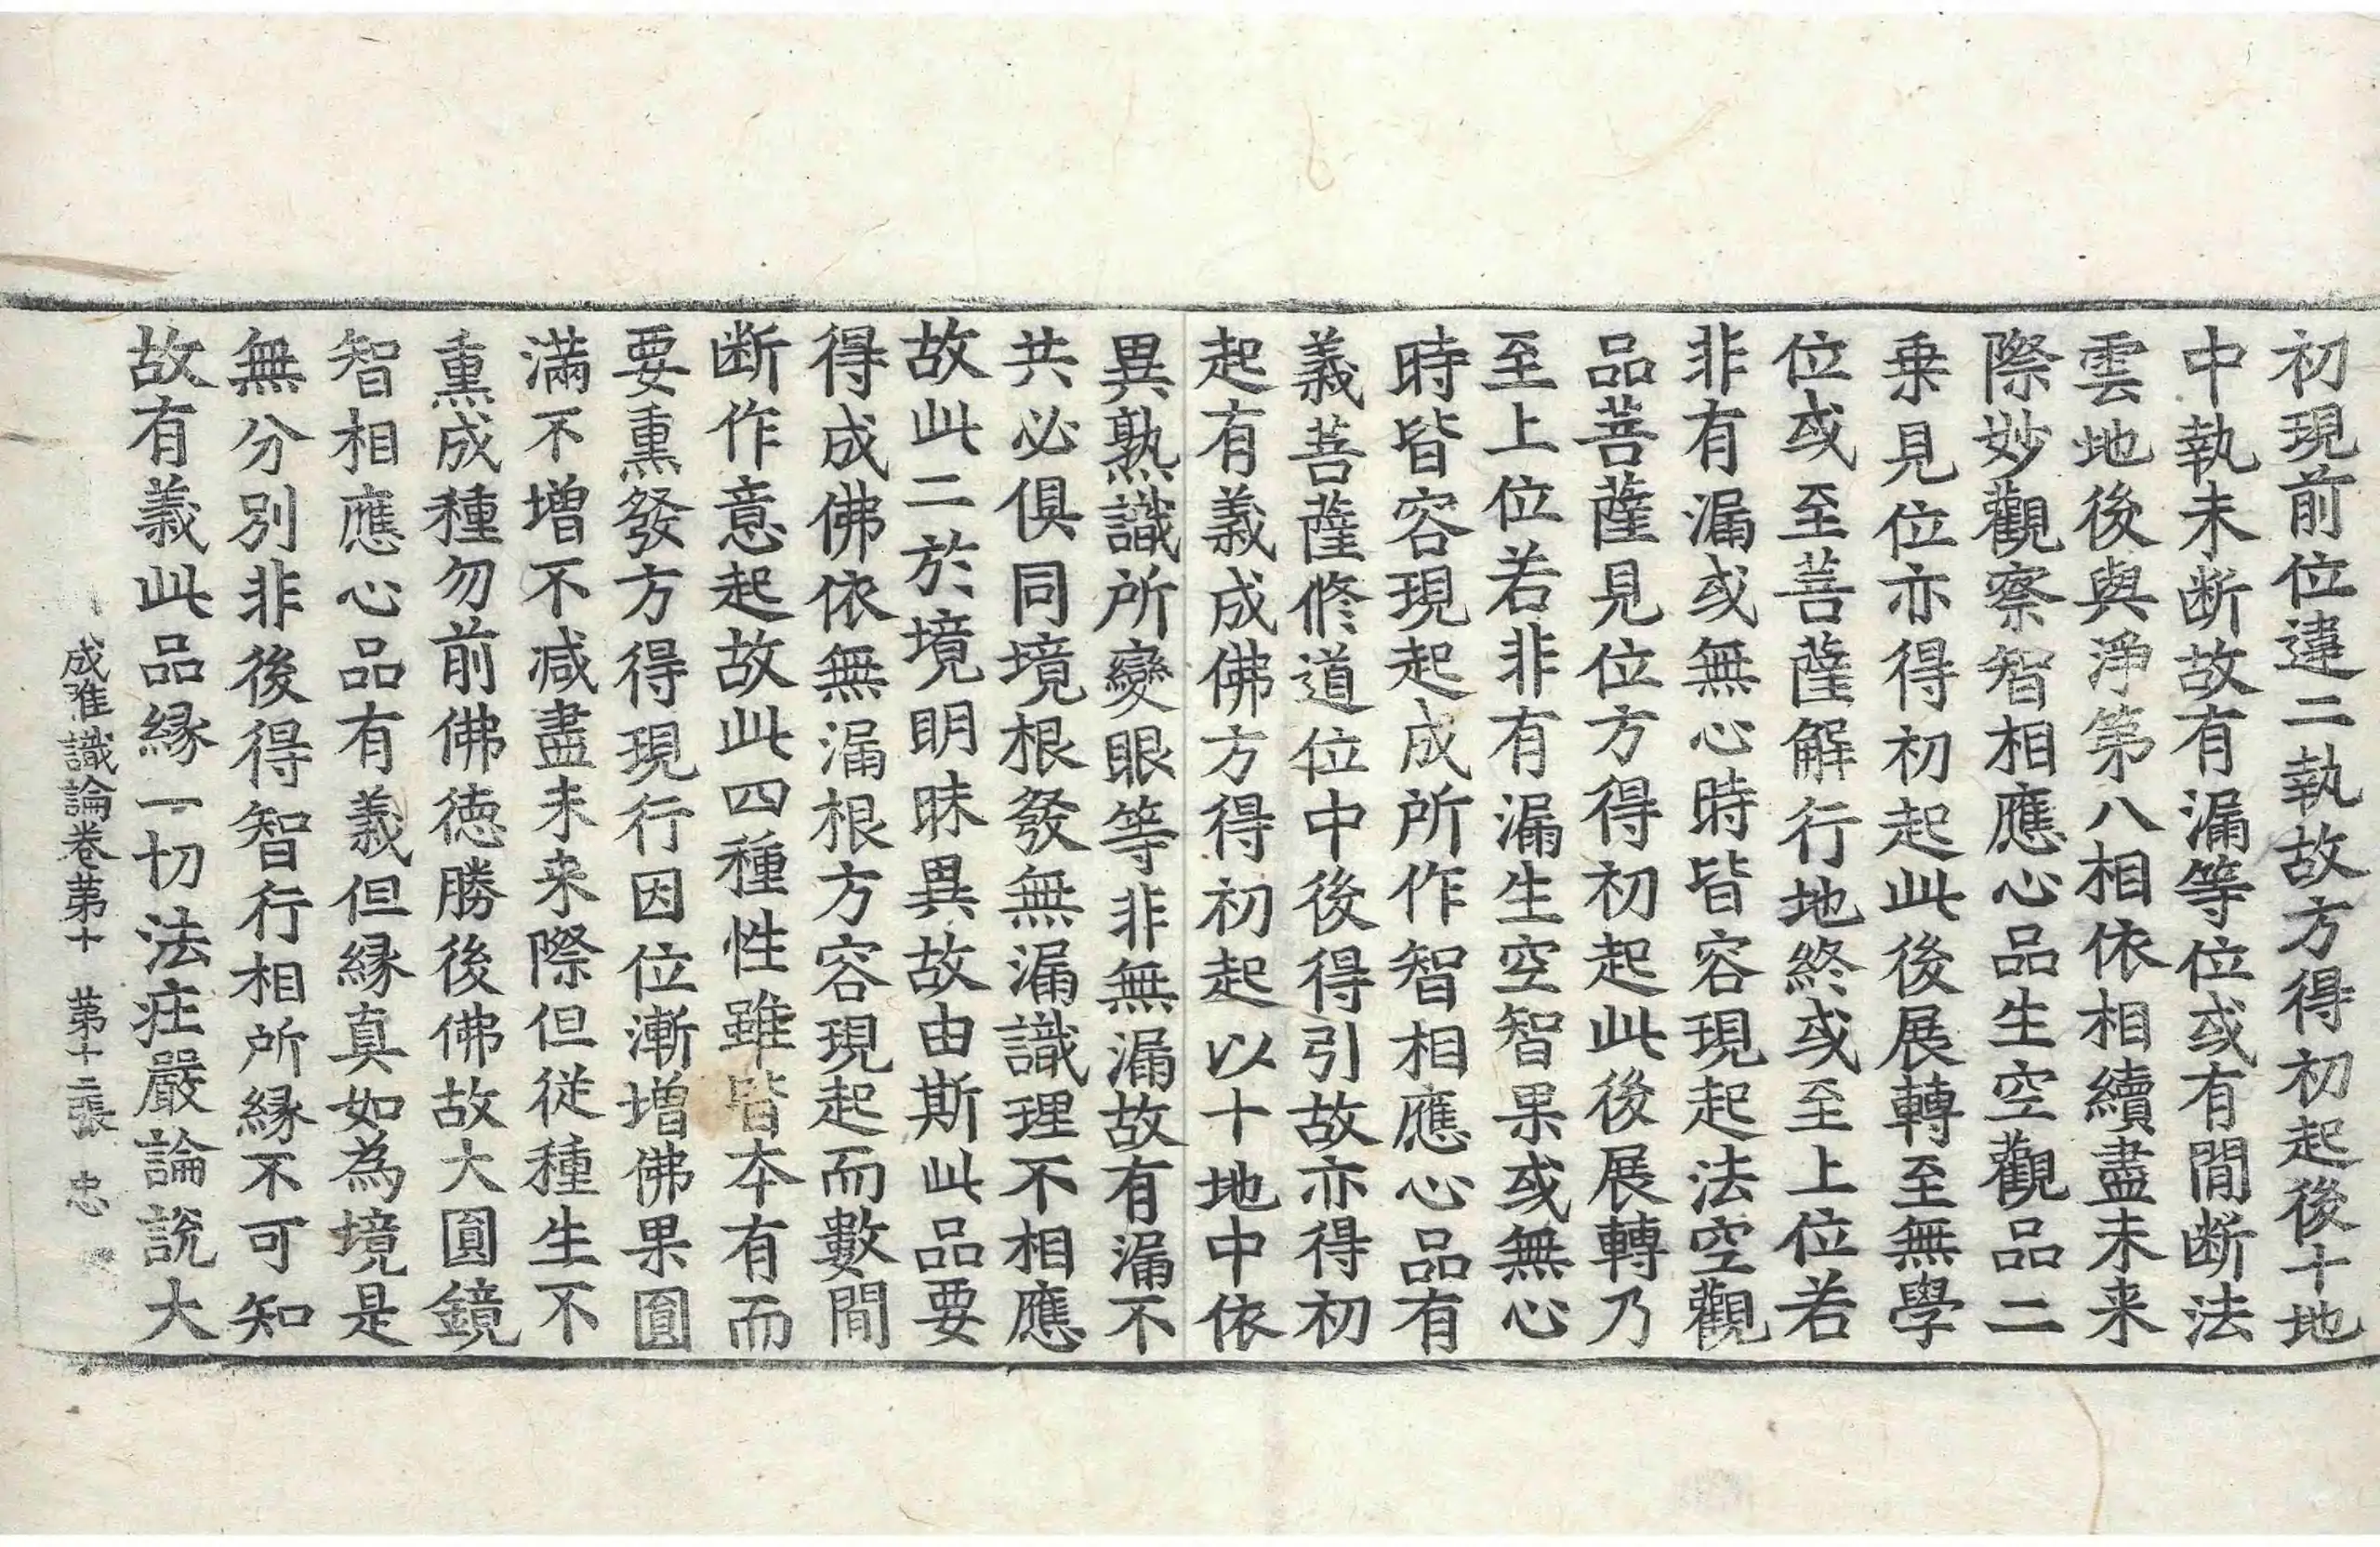 初現前位違二執故方得初起後十地
中執未断故有漏等位或有間断法
雲地後與淨第八相依相續盡未来
際妙觀察智相應心品生空觀品二
乗見位亦得初起此後展轉至無學
位或至菩薩解行地終或至上位若
非有漏或無心時皆容現起法空觀
品菩薩見位方得初起此後展轉乃
至上位若非有漏生空智果或無心
時皆容現起成所作智相應心品有
義菩薩修道位中後得引故亦得初
起有義成佛方得初起以十地中依
異熟識所變眼等非無漏故有漏不
共必俱同境根發無漏識理不相應
故此二於境明昧異故由斯此品要
得成佛依無漏根方容現起而數間
断作意起故此四種性雖皆本有而
要熏發方得現行因位漸増佛果圓
滿不増不減盡未来際但従種生不
熏成種勿前佛徳勝後佛故大圓鏡
智相應心品有義但縁真如為境是
無分別非後得智行相所縁不可知
故有義此品縁一切法荘嚴論説大
成唯識論巻第十　第十二張　忠